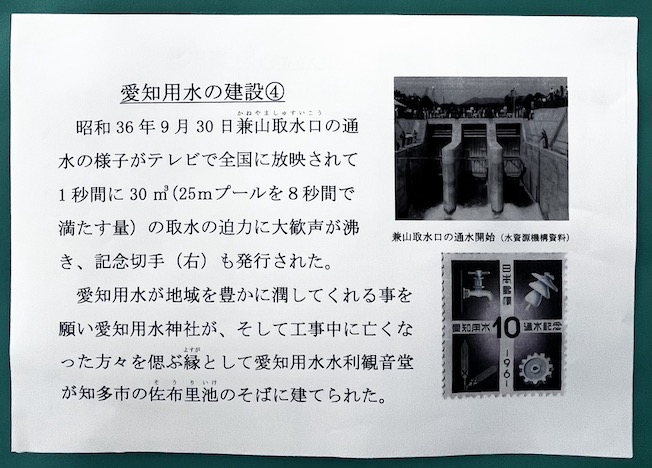 愛知用水の建設④
かねやましゅすいこう
昭和36年9月30日兼山取水口の通
水の様子がテレビで全国に放映されて
1秒間に30㎥(25mプールを8秒間で
満たす量)の取水の迫力に大歓声が沸
き、記念切手(右)も発行された。
愛知用水が地域を豊かに潤してくれる事を
願い愛知用水神社が、そして工事中に亡くな
よすが
った方々を偲ぶ縁として愛知用水水利観音堂
そうりいけ
が知多市の佐布里池のそばに建てられた。
兼山取水口の通水開始(水資源機構資料)
日本郵便
愛知用水 10 通水記念
1961